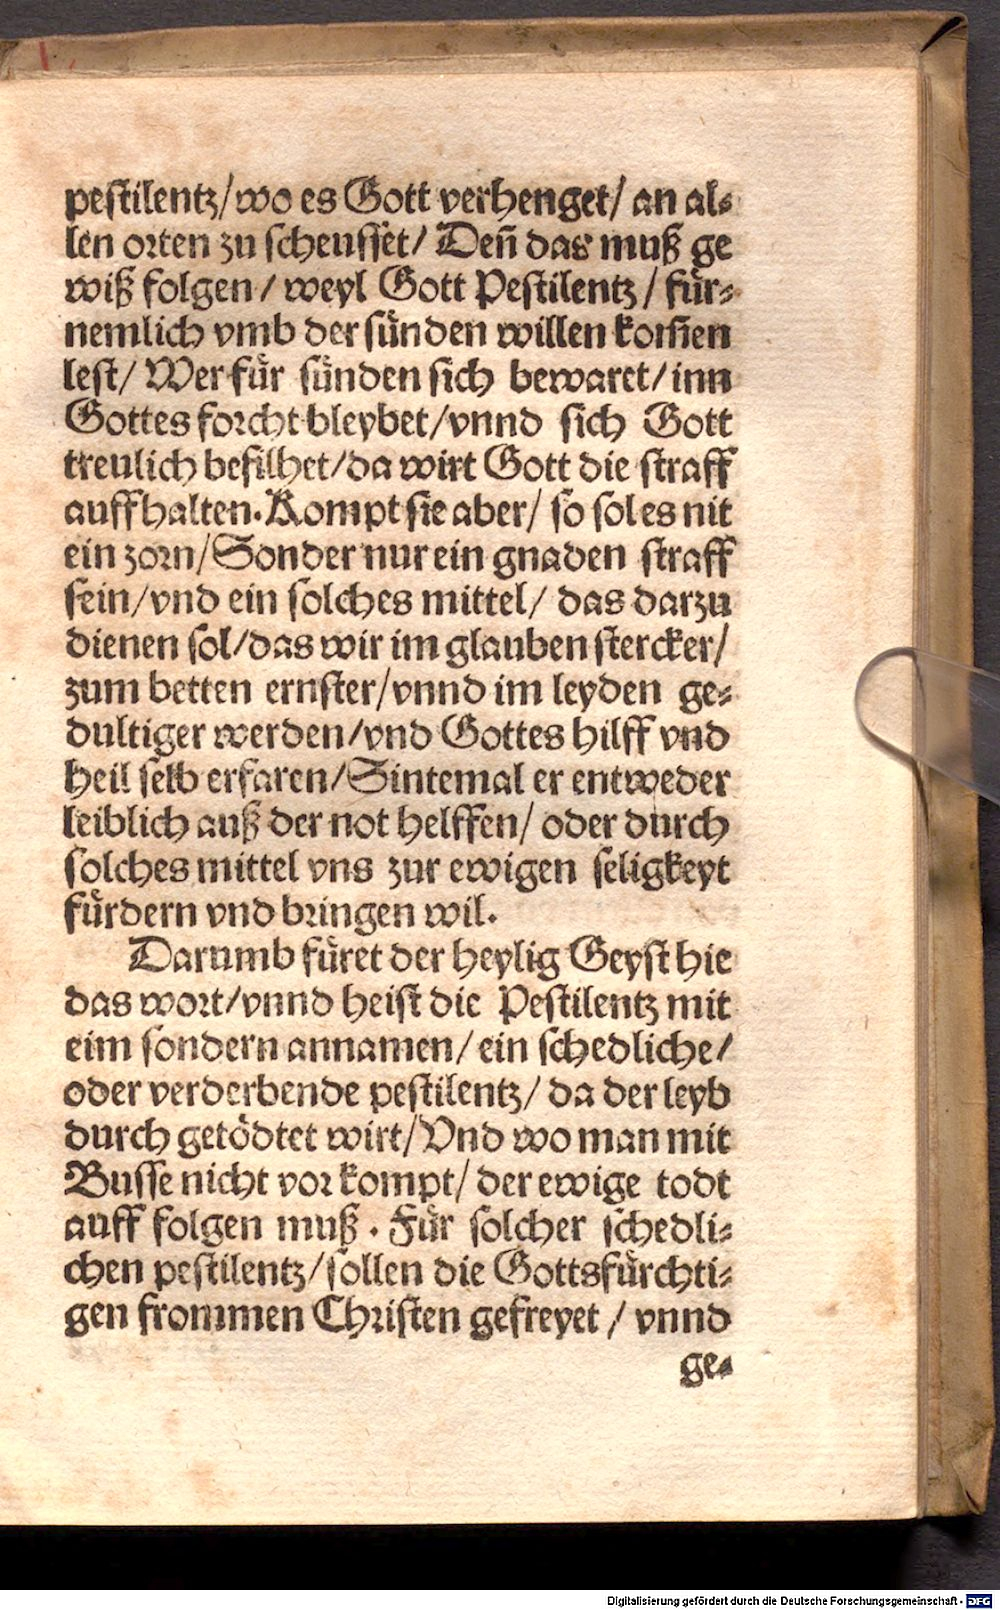 pestilentz/ wo es Gott verhenget/ an al⸗
len orten zu scheusset/ Deñ das muß ge
wiß folgen/ weyl Gott Pestilentz/ für⸗
nemlich vmb der sünden willen kom̃en
lest/ Wer für sünden sich bewaret/ inn
Gottes forcht bleybet/ vnnd sich Gott
treulich befilhet/ da wirt Gott die straff
auffhalten. Kompt sie aber/ so sol es nit
ein zorn/ Sonder nur ein gnaden straff
sein/ vnd ein solches mittel/ das darzu
dienen sol/ das wir im glauben stercker/
zum betten ernster/ vnnd im leyden ge⸗
dultiger werden/ vnd Gottes hilff vnd
heil selb erfaren/ Sintemal er entweder
leiblich auß der not helffen/ oder durch
solches mittel vns zur ewigen seligkeyt
fürdern vnd bringen wil.
Darumb füret der heylig Geyst hie
das wort/ vnnd heist die Pestilentz mit
eim sondern annamen/ ein schedliche/
oder verderbende pestilentz/ da der leyb
durch getödtet wirt/ Vnd wo man mit
Busse nicht vor kompt/ der ewige todt
auff folgen muß. Für solcher schedli⸗
chen pestilentz/ sollen die Gottsfürchti⸗
gen frommen Christen gefreyet/ vnnd
ge⸗
Digitalisierung gefördert durch die Deutsche Forschungsgemeinschaft - DFG